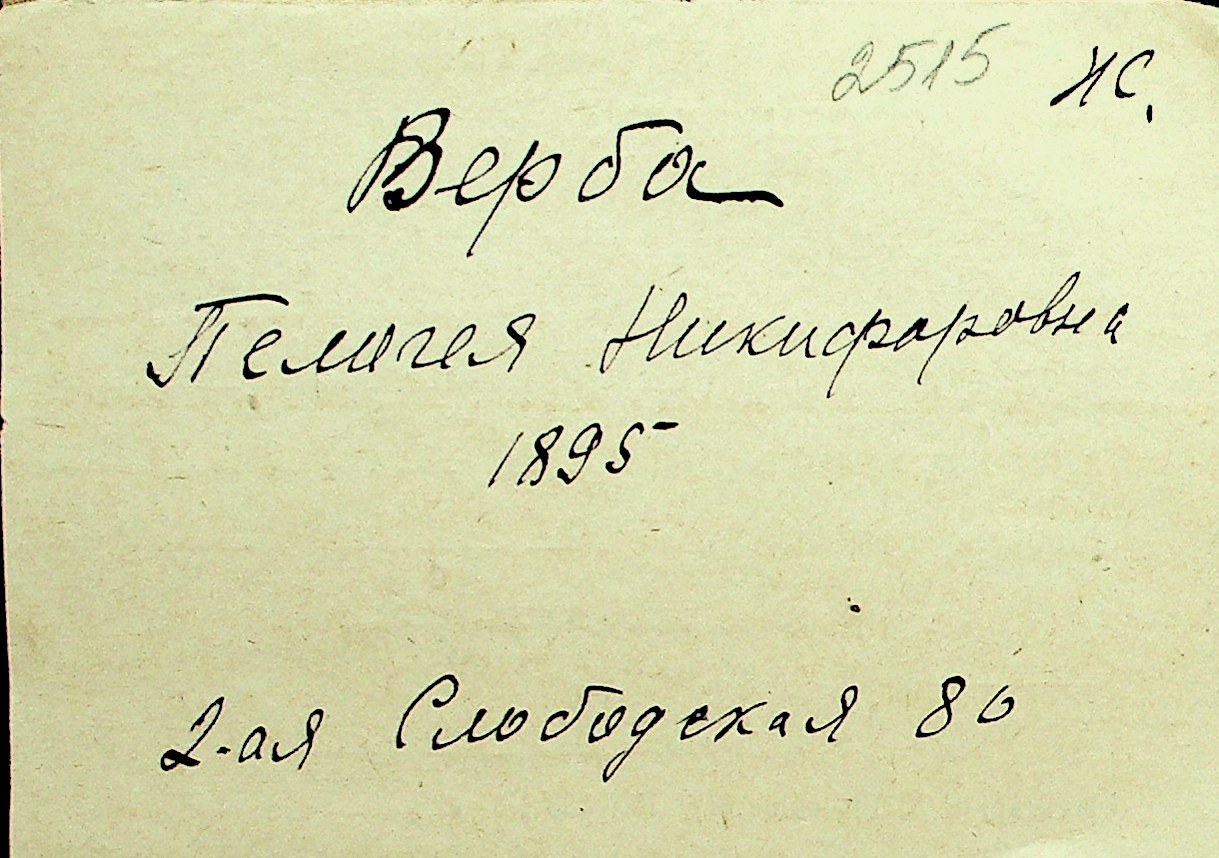 2515 НС.
Верба
Пелагея Никифоровна
1895
2-ая Слободская 80